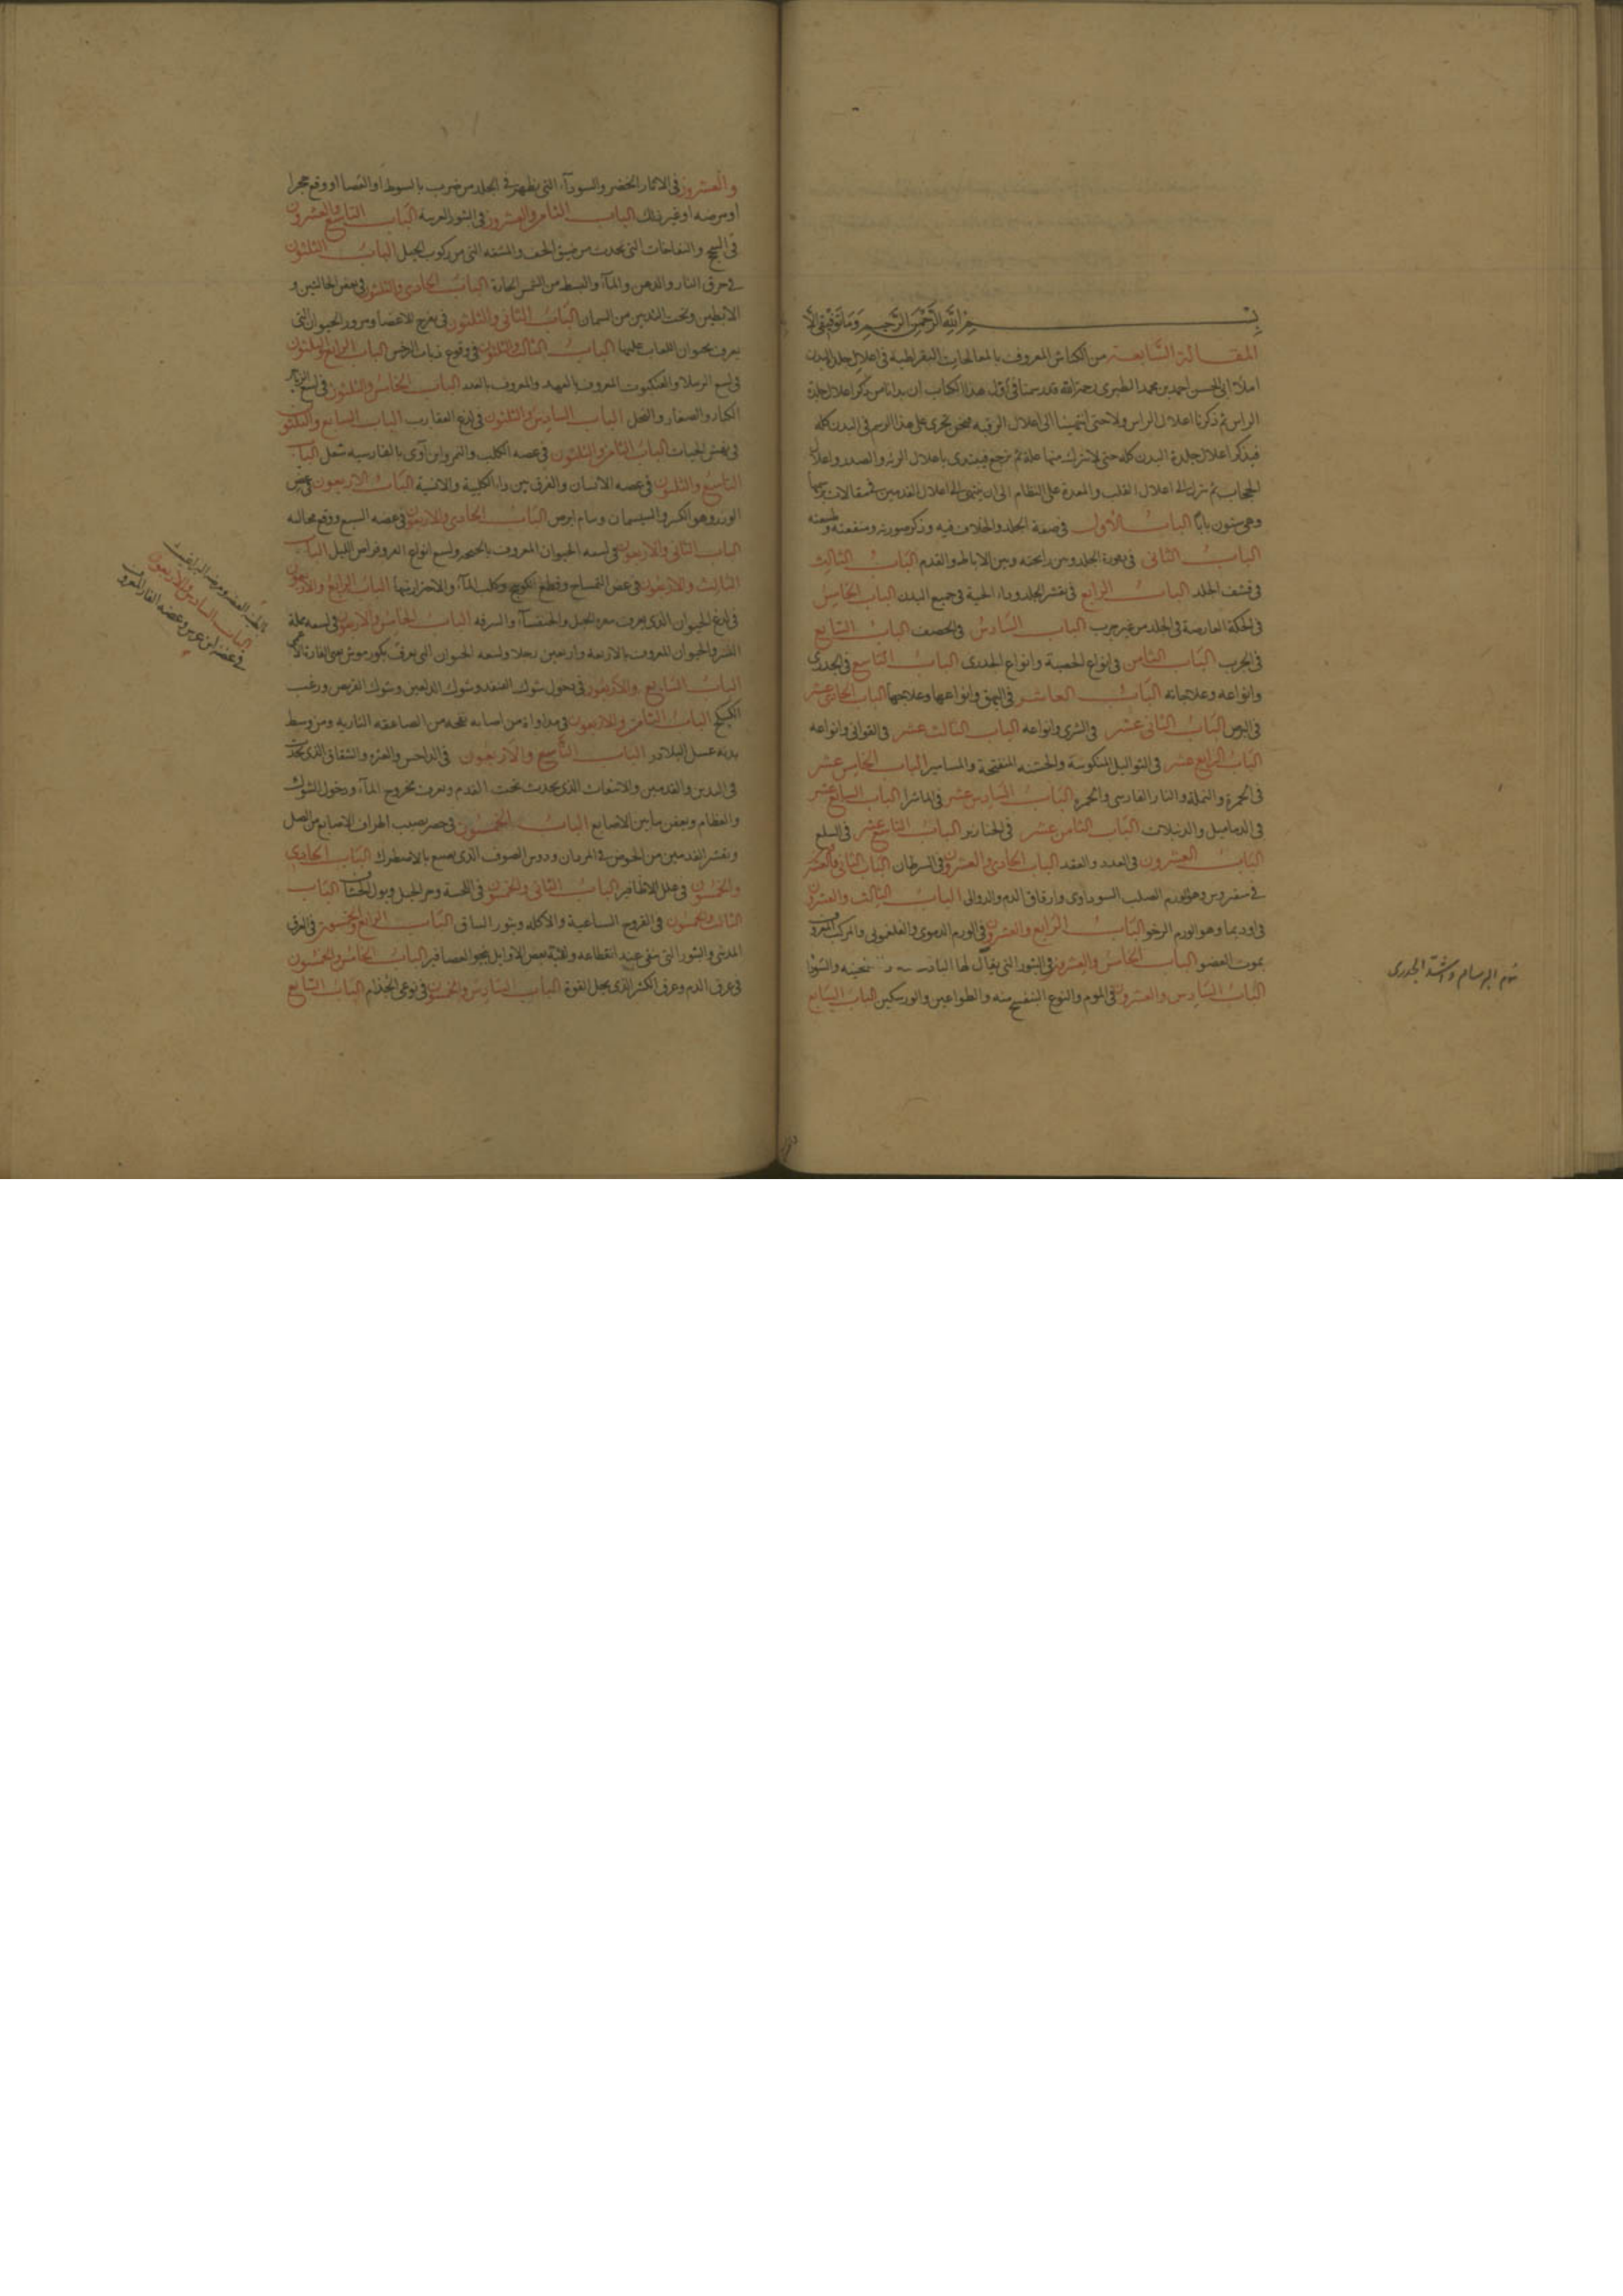 بسم الله الرحمن الرحيم وما توفيقي الا
المقالة السابعة من الكناش المعروف بالمعالجات البقراطية في اعلال جلد البدن
املأ ابي الحسن احمد بن محمد الطبري رحمه الله قد رسمنا في اول هذا الكتاب ان بدانا من ذكر اعلال جلدة
الراس ثم ذكرنا اعلال الراس ولاء حتى انتهينا الى اعلال الرقبه فنحن نجري على هذا الرسم في البدن كله
فنذكر اعلال جلدة البدن كله حتى لا نترك منها علة ثم نرجع فنبتدى باعلال الريه والصدر واعلال
الحجاب ثم نترك الى اعلال القلب والمعدة على النظام الى ان ينتهي الى اعلال القدمين في مقالات
وهي ستون بابا الباب الاول في صفة الجلد والخلاف فيه وذكر صورته ومنفعته وطبيعته
الباب الثاني في الجلد ومن رائحته وبين الاباط والقدم الباب الثالث
في قشف الجلد الباب الرابع في تقشر الجلد وداء الحية في جميع البدن الباب الخامس
في الحكة العارضة في الجلد من غير جرب الباب السادس في الحصف الباب السابع
في الجرب الباب الثامن في انواع الحصبة وانواع الجدرى الباب التاسع في الجدرى
وانواعه وعلاجاته الباب العاشر في البهق وانواعها وعلاجها الباب الحادي عشر
في البرص الباب الثاني عشر في الشرى وانواعه الباب الثالث عشر في القوابي وانواعه
الباب الرابع عشر في الثواليل المنكوسة والخشنه المتفتحة والمسامير الباب الخامس عشر
في الجمرة والنملة والنار الفارسى والحمرة الباب السادس عشر في الماشرا الباب السابع عشر
في الدماميل والدبيلات الباب الثامن عشر في الخنازير الباب التاسع عشر في السلع
الباب العشرون في الغدد والعقد الباب الحادي والعشرون في السرطان الباب الثاني والعشرون
في سقيروس وهو الورم الصلب السوداوى وارقاق الدم والدوالى الباب الثالث والعشرون
في اوديما وهو الورم الرخو الباب الرابع والعشرون في الورم الدموى والفلغمونى والمركب المعروف
بموت العضو الباب الخامس والعشرون في البثور التي يقال لها
الباب السادس والعشرون في الموم والنوع المنفتح منه والطواعين الباب السابع
البرسام وشدة الجدرى
والعشرون في الاثار الخضر والسوداء التي يظهر في الجلد من ضرب بالسوط او العصا او وقع حجرا
او غير ذلك الباب الثامن والعشرون في البثور الغريبة الباب التاسع والعشرون
في السحج والنفاخات التي تحدث من ضيق الخف التي من ركوب الخيل الباب الثلثون
في حرق النار والدهن والماء من الشمس الحارة الباب الحادي والثلثون
الابطين وتحت الثديين من السمان الباب الثاني والثلثون في ومرور الحيوان التي
يعرف بحيوان اللعاب عليها الباب الثالث والثلثون في وقوع الباب الرابع والثلثون
في لسع الرتيلا والعنكبوت المعروف بالفهد الباب الخامس والثلثون في لسع الزنابير
الكبار والصغار والنحل الباب السادس والثلثون في لدغ العقارب الباب السابع والثلثون
في نهش الحيات الباب الثامن والثلثون في عضه الكلب والنمر وابن آوى بالفارسيه شغل الباب
التاسع والثلثون في عضه الانسان والفرق بين داء الكلبية والانسية الباب الاربعون في عض
الورل وسام ابرص الباب الحادي والاربعون في عضه السبع ووقع مخالبه
الباب الثاني والاربعون في لسعه الحيوان المعروف الباب
الثالث والاربعون في عض التمساح وقطع الكوسج وكلب الماء والاحتراز منها الباب الرابع والاربعون
في لدغ الحيوان الذي يعرف والخنفساء والسرفه الباب الخامس والاربعون في لسعه نملة
والحيوان المعروف بالاربعة واربعين رجلا ولسعه الحيوان التي يعرف بكور موش يعني الفارة الاعمى
الباب السابع والاربعون في دخول شوك القنفذ وشوك الدلفين وشوك القريص وزغب
الكبيكج الباب الثامن والاربعون في مداواة من اصابه نفحه من الصاعقه الناريه ومن وسط
بدنه عسل البلادر الباب التاسع والاربعون في الداحس والعثره والشقاق الذي يحدث
في اليدين والقدمين الذي يحدث تحت القدم ويعرف بخروج الماء ودخول الشوك
والعظام وتعفن ما بين الاصابع الباب الخمسون في حصر يصيب اطراف الاصابع من العمل
وتقشر القدمين من الخوض الباب الحادي
والخمسون في علل الاظافير الباب الثاني والخمسون الباب
الثالث والخمسون في القروح الساعية والاكله وبثور الساق الباب الرابع والخمسون في العرق
المدني والبثور التي عند انقطاعه الباب الخامس والخمسون
في عرق الدم وعرق الكثير الذي يحل القوة الباب السادس والخمسون في نوعي الجذام الباب السابع
الباب السادس والاربعون
في عضه ابن عرس وعضه الفار المعروف